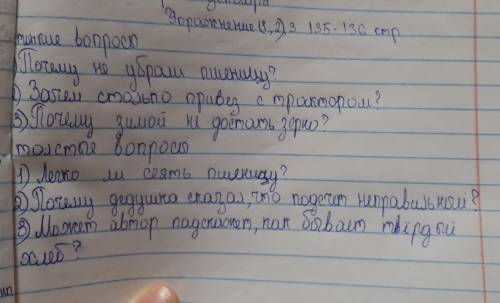 Упражнение (1,2),3 135-136 стр
тонкие вопросы
Почему не убрали пшеницу?
Зачем столько привез с трактором?
3) Почему зимой не достать зерно?
толстые вопросы
1) Легко ли сеять пшеницу?
2) Почему дедушка сказал, что подсчет неправильный?
3) Может автор падскажет, как бывает твёрдый
хлеб?